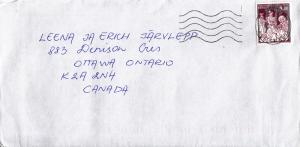 LEENA JA ERICH JÄRVLEPP
883 Denison Cres
OTTAWA ONTARIO
K2A 2N4
CANADA